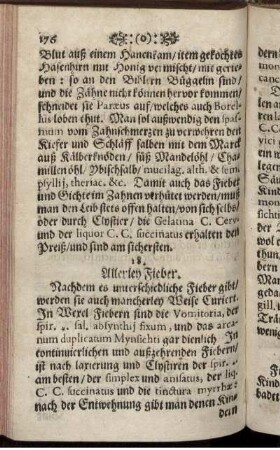 176 (o)
Blut auß einem Hanenkam/item gekochtes
Hasenhirn mit Honig vermischt/mit gerie-
ben: so an den Bihlern Büggelin sind/
und die Zähne nicht können hervor kommen/
schneidet sie Paræus auf/welches auch Borel-
lus loben thut. Man sol außwendig den spas-
mum vom Zahnschmerzen zu verwehren den
Kiefer und Schläff salben mit dem Marck
auß Kälberknöden/ süß Mandelöhl/ Cha-
millenöhl/Ybischsalb/ mucilag. alth. & sem.
psyllij, theriac. &c. Damit auch das Fieber
und Gichte im Zahnen verhütet werden/muß
man den Leib stets offen halten/von sich selbst
oder durch Clystier/ die Gelatina C. Cervi
und der liquor C. C. succinatus erhalten den
Preiß/ und sind am sichersten.
18.
Allerley Fieber.
Nachdem es unterschiedliche Fieber gibt/
werden sie auch mancherley Weise Curiert.
In Wexel Fiebern sind die Vomitoria, der
spir. sal, absynthij fixum, und das arca-
num duplicatum Mynsichti gar dienlich In
continuierlichen und außzehrenden Fiebern/
ist nach laxierung und Clystiren der spir.
am besten/ der simplex und anisatus, der liq.
C. C. succinatus und die tinctura myrrhæ:
nach der Entwehnung gibt man denen Kin-
dern